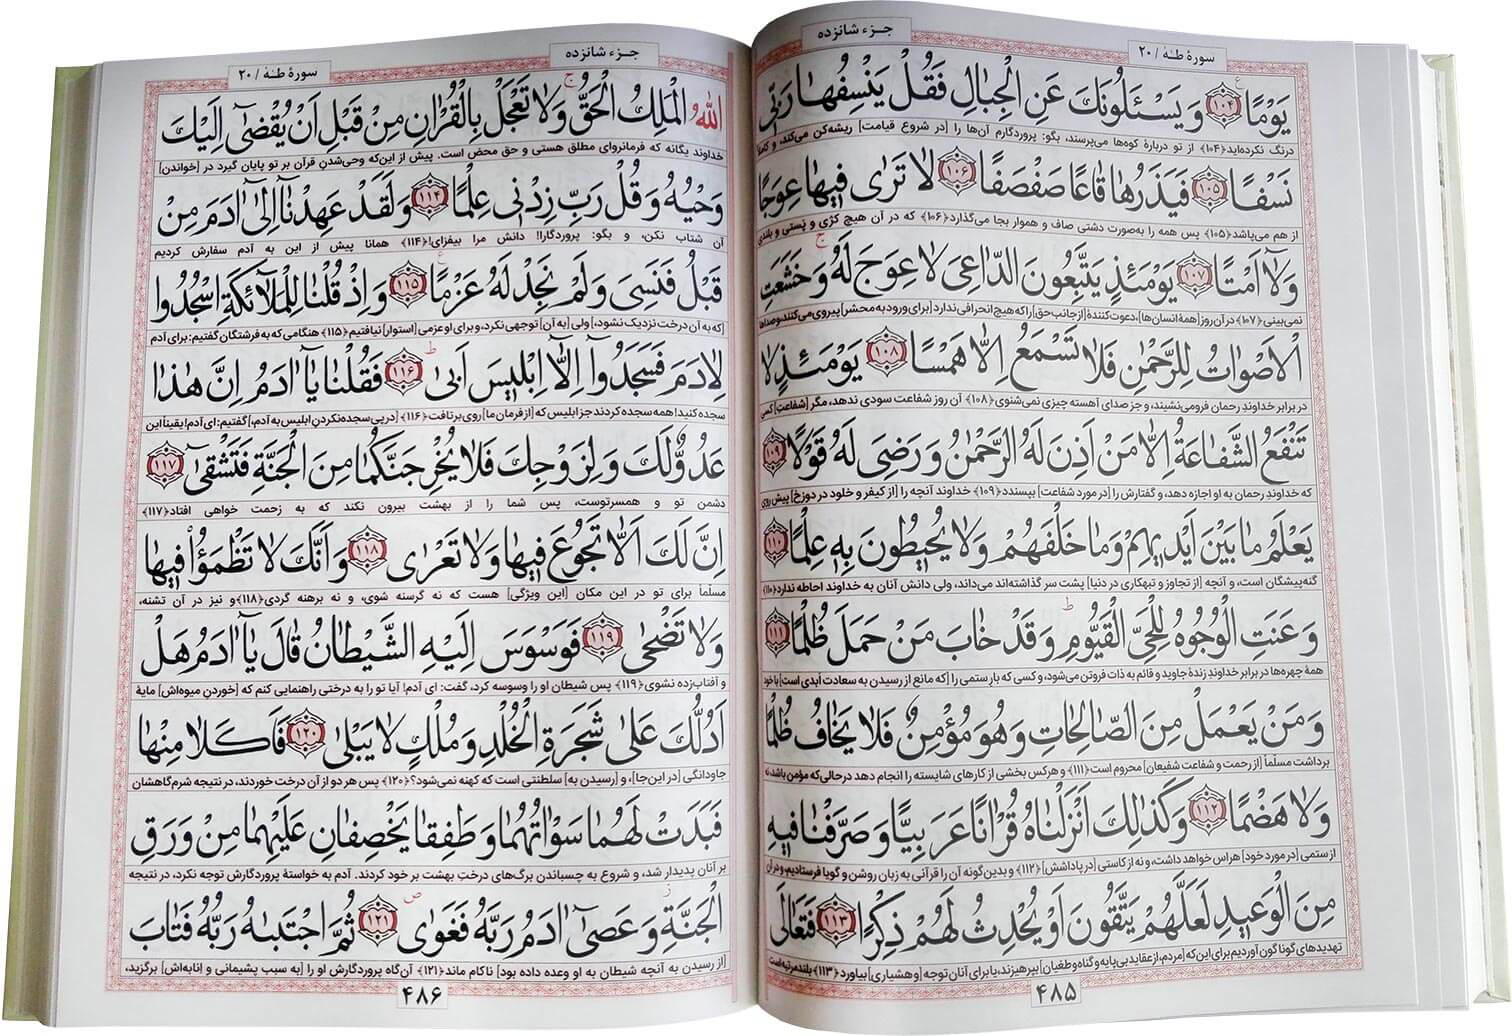 سورهٔ طـٰهٰ / ۲۰
جـزء شانزده
یَوْمًا ﴿۱۰۴﴾ وَ یَسْـَٔلُونَكَ عَنِ الْجِبٰالِ فَقُلْ یَنْسِفُهٰا رَبّٖی
درنگ نکرده‌اید﴿۱۰۴﴾ از تو دربارهٔ کوه‌ها می‌پرسند، بگو: پروردگارم آن‌ها را [در شروع قیامت] ریشه‌کن می‌کند، و کاملاً
نَسْفًا ﴿۱۰۵﴾ فَیَذَرُهٰا قٰاعًا صَفْصَفًا ﴿۱۰۶﴾ لٰا تَرٰی فٖیهٰا عِوَجًا
از هم می‌پاشد﴿۱۰۵﴾ پس همه را به‌صورت دشتی صاف و هموار بجا می‌گذارد﴿۱۰۶﴾ که در آن هیچ کژی و پستی و بلندی
وَ لٰٓا اَمْتًا ﴿۱۰۷﴾ یَوْمَئِذٍ یَتَّبِعُونَ الدّٰاعِیَ لٰا عِوَجَ لَهُ وَ خَشَعَتِ
نمی‌بینی﴿۱۰۷﴾ در آن روز [همهٔ انسان‌ها]، دعوت‌کنندهٔ [از جانب حق] را که هیچ انحرافی ندارد [برای ورود به محشر] پیروی می‌کنند، و صداها
الْاَصْوٰاتُ لِلرَّحْمٰنِ فَلٰا تَسْمَعُ اِلّٰا هَمْسًا ﴿۱۰۸﴾ یَوْمَئِذٍ لٰا
در برابر خداوندِ رحمان فرومی‌نشیند، و جز صدای آهسته چیزی نمی‌شنوی﴿۱۰۸﴾ آن روز شفاعت سودی ندهد، مگر [شفاعتِ] کسی
تَنْفَعُ الشَّفٰاعَةُ اِلّٰا مَنْ اَذِنَ لَهُ الرَّحْمٰنُ وَ رَضِیَ لَهُ قَوْلًا ﴿۱۰۹﴾
که خداوندِ رحمان به او اجازه دهد، و گفتارش را [در مورد شفاعت] بپسندد﴿۱۰۹﴾ خداوند آنچه را [از کیفر و خلود در دوزخ] پیش روی
یَعْلَمُ مٰا بَیْنَ اَیْدٖیهِمْ وَ مٰا خَلْفَهُمْ وَ لٰا یُحٖیطُونَ بِهٖ عِلْمًا ﴿۱۱۰﴾
گنه‌پیشگان است، و آنچه [از تجاوز و تبهکاری در دنیا] پشت سر گذاشته‌اند می‌داند، ولی دانش آنان به خداوند احاطه ندارد﴿۱۱۰﴾
وَ عَنَتِ الْوُجُوهُ لِلْحَیِّ الْقَیُّومِ وَ قَدْ خٰابَ مَنْ حَمَلَ ظُلْمًا ﴿۱۱۱﴾
همهٔ چهره‌ها در برابر خداوندِ زندهٔ جاوید و قائم به ذات فروتن می‌شود، و کسی که بار ستمی را [که مانع از رسیدن به سعادت ابدی است] با خود
وَ مَنْ یَعْمَلْ مِنَ الصّٰالِحٰاتِ وَ هُوَ مُؤْمِنٌ فَلٰا یَخٰافُ ظُلْمًا
برداشت مسلماً [از رحمت و شفاعت شفیعان] محروم است﴿۱۱۱﴾ و هرکس بخشی از کارهای شایسته را انجام دهد درحالی‌که مؤمن باشد، نه
وَ لٰا هَضْمًا ﴿۱۱۲﴾ وَ كَذٰلِكَ اَنْزَلْنٰاهُ قُرْاٰنًا عَرَبِیًّا وَ صَرَّفْنٰا فٖیهِ
از ستمی [در مورد خود] هراس خواهد داشت، و نه از کاستی [در پاداشش]﴿۱۱۲﴾ و بدین‌گونه آن را قرآنی به زبان روشن و گویا فرستادیم، و در آن
مِنَ الْوَعٖیدِ لَعَلَّهُمْ یَتَّقُونَ اَوْ یُحْدِثُ لَهُمْ ذِكْرًا ﴿۱۱۳﴾ فَتَعٰالَی
تهدیدهای گوناگون آوردیم برای این‌که [مردم، از عقاید بی‌پایه و گناه و طغیان] بپرهیزند، یا برای آنان توجه [و هشیاری] بیاورد﴿۱۱۳﴾ بلندمرتبه است
۴۸۵
جـزء شانزده
سورهٔ طـٰهٰ / ۲۰
اللّٰهُ الْمَلِكُ الْحَقُّ وَ لٰا تَعْجَلْ بِالْقُرْاٰنِ مِنْ قَبْلِ اَنْ یُقْضٰٓی اِلَیْكَ
خداوند یگانه که فرمانروای مطلق هستی و حق محض است. پیش از این‌که وحی‌شدن قرآن بر تو پایان گیرد در [خواندن]
وَحْیُهُ وَ قُلْ رَبِّ زِدْنٖی عِلْمًا ﴿۱۱۴﴾ وَ لَقَدْ عَهِدْنٰٓا اِلٰٓی اٰدَمَ مِنْ
آن شتاب نکن، و بگو: پروردگارا! دانش مرا بیفزای!﴿۱۱۴﴾ همانا پیش از این به آدم سفارش کردیم
قَبْلُ فَنَسِیَ وَ لَمْ نَجِدْ لَهُ عَزْمًا ﴿۱۱۵﴾ وَ اِذْ قُلْنٰا لِلْمَلٰٓائِكَةِ اسْجُدُوا
[که به آن درخت نزدیک نشود]، ولی [به آن] توجهی نکرد، و برای او عزمی [استوار] نیافتیم﴿۱۱۵﴾ هنگامی که به فرشتگان گفتیم: برای آدم
لِاٰدَمَ فَسَجَدُوٓا اِلّٰٓا اِبْلٖیسَ اَبٰی ﴿۱۱۶﴾ فَقُلْنٰا یٰٓا اٰدَمُ اِنَّ هٰذٰا
سجده کنید! همه سجده کردند جز ابلیس که [از فرمان ما] روی برتافت﴿۱۱۶﴾ [در پی سجده‌نکردنِ ابلیس به آدم،] گفتیم: ای آدم! یقیناً این
عَدُوٌّ لَكَ وَ لِزَوْجِكَ فَلٰا یُخْرِجَنَّكُمٰا مِنَ الْجَنَّةِ فَتَشْقٰٓی ﴿۱۱۷﴾
دشمن تو و همسرتوست، پس شما را از بهشت بیرون نکند که به زحمت خواهی افتاد﴿۱۱۷﴾
اِنَّ لَكَ اَلّٰا تَجُوعَ فٖیهٰا وَ لٰا تَعْرٰی ﴿۱۱۸﴾ وَ اَنَّكَ لٰا تَظْمَؤُا فٖیهٰا
مسلّماً برای تو در این مکان [این ویژگی] هست که نه گرسنه شوی، و نه برهنه گردی﴿۱۱۸﴾ و نیز در آن تشنه،
وَ لٰا تَضْحٰی ﴿۱۱۹﴾ فَوَسْوَسَ اِلَیْهِ الشَّیْطٰانُ قٰالَ یٰٓا اٰدَمُ هَلْ
و آفتاب‌زده نشوی﴿۱۱۹﴾ پس شیطان او را وسوسه کرد، گفت: ای آدم! آیا تو را به درختی راهنمایی کنم که [خوردنِ میوه‌اش] مایهٔ
اَدُلُّكَ عَلٰی شَجَرَةِ الْخُلْدِ وَ مُلْكٍ لٰا یَبْلٰی ﴿۱۲۰﴾ فَاَكَلٰا مِنْهٰا
جاودانگی [در این‌جا]، و [رسیدن به] سلطنتی است که کهنه نمی‌شود؟﴿۱۲۰﴾ پس هر دو از آن درخت خوردند، در نتیجه شرم‌گاهشان
فَبَدَتْ لَهُمٰا سَوْاٰتُهُمٰا وَ طَفِقٰا یَخْصِفٰانِ عَلَیْهِمٰا مِنْ وَرَقِ
بر آنان پدیدار شد، و شروع به چسباندن برگ‌های درختِ بهشت بر خود کردند. آدم به خواستهٔ پروردگارش توجه نکرد، در نتیجه
الْجَنَّةِ وَ عَصٰٓی اٰدَمُ رَبَّهُ فَغَوٰی ﴿۱۲۱﴾ ثُمَّ اجْتَبٰىهُ رَبُّهُ فَتٰابَ
[از رسیدن به آنچه شیطان به او وعده داده بود] ناکام ماند﴿۱۲۱﴾ آن‌گاه پروردگارش او را [به سبب پشیمانی و انابه‌اش] برگزید،
۴۸۶